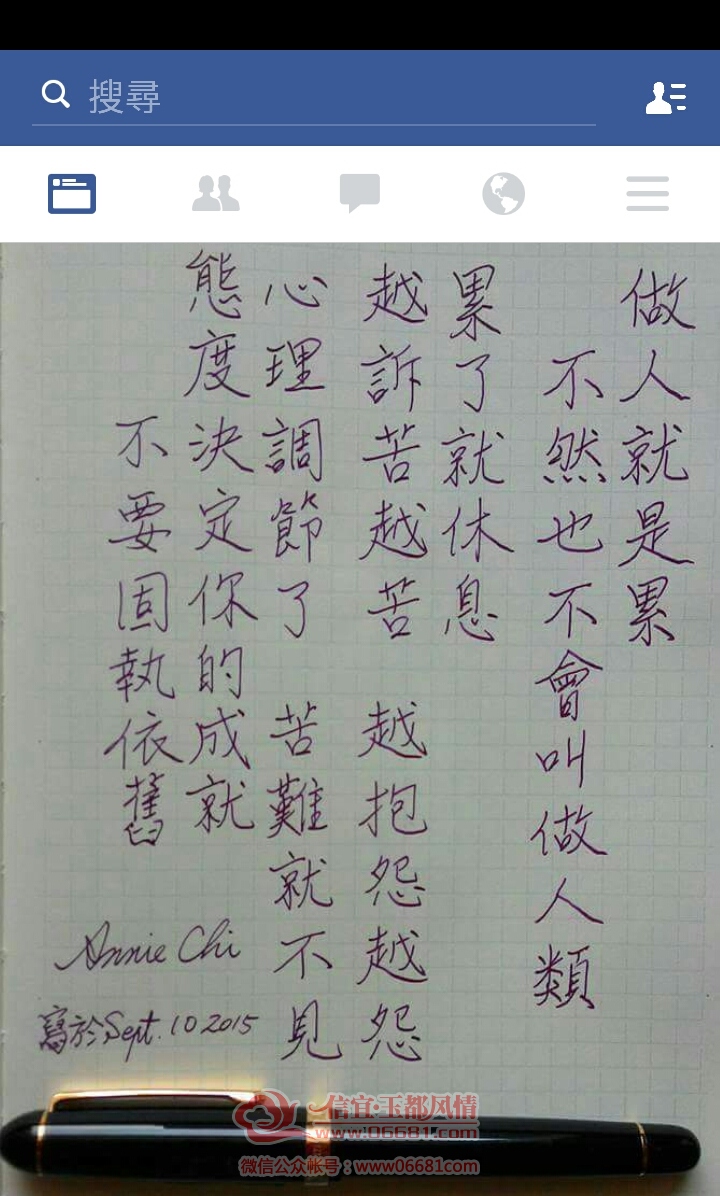 搜尋
做人就是累
不然也不會叫做人類
累了就休息
越訴苦越苦 越抱怨越怨
心理調節了 苦難就不見
態度決定你的成就
不要固執依舊
Annie Chi
寫於Sept. 10 2015
信宜·玉都风情
www.06681.com
微信公众帐号：www06681com